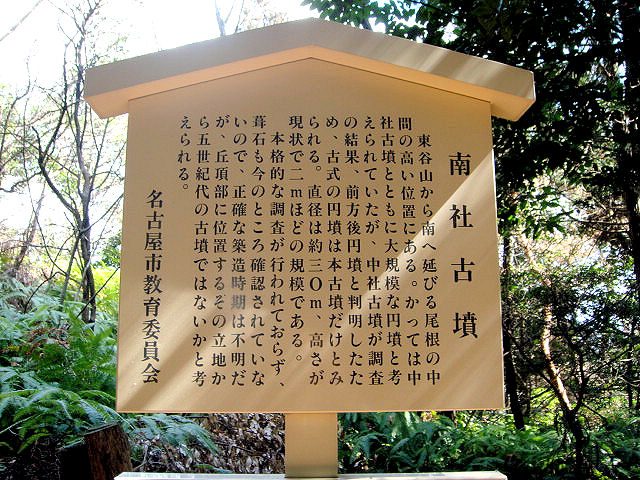 南社古墳
東谷山から南へ延びる尾根の中
間の高い位置にある。かつては中
社古墳とともに大規模な円墳と考
えられていたが、中社古墳が調査
の結果、前方後円墳と判明したた
め、古式の円墳は本古墳だけとみ
られる。直径は約三〇m、高さが
現状で二mほどの規模である。
本格的な調査が行われておらず、
葺石も今のところ確認されていな
いので、正確な築造時期は不明だ
が、丘頂部に位置するその立地か
ら五世紀代の古墳ではないかと考
えられる。
名古屋市教育委員会